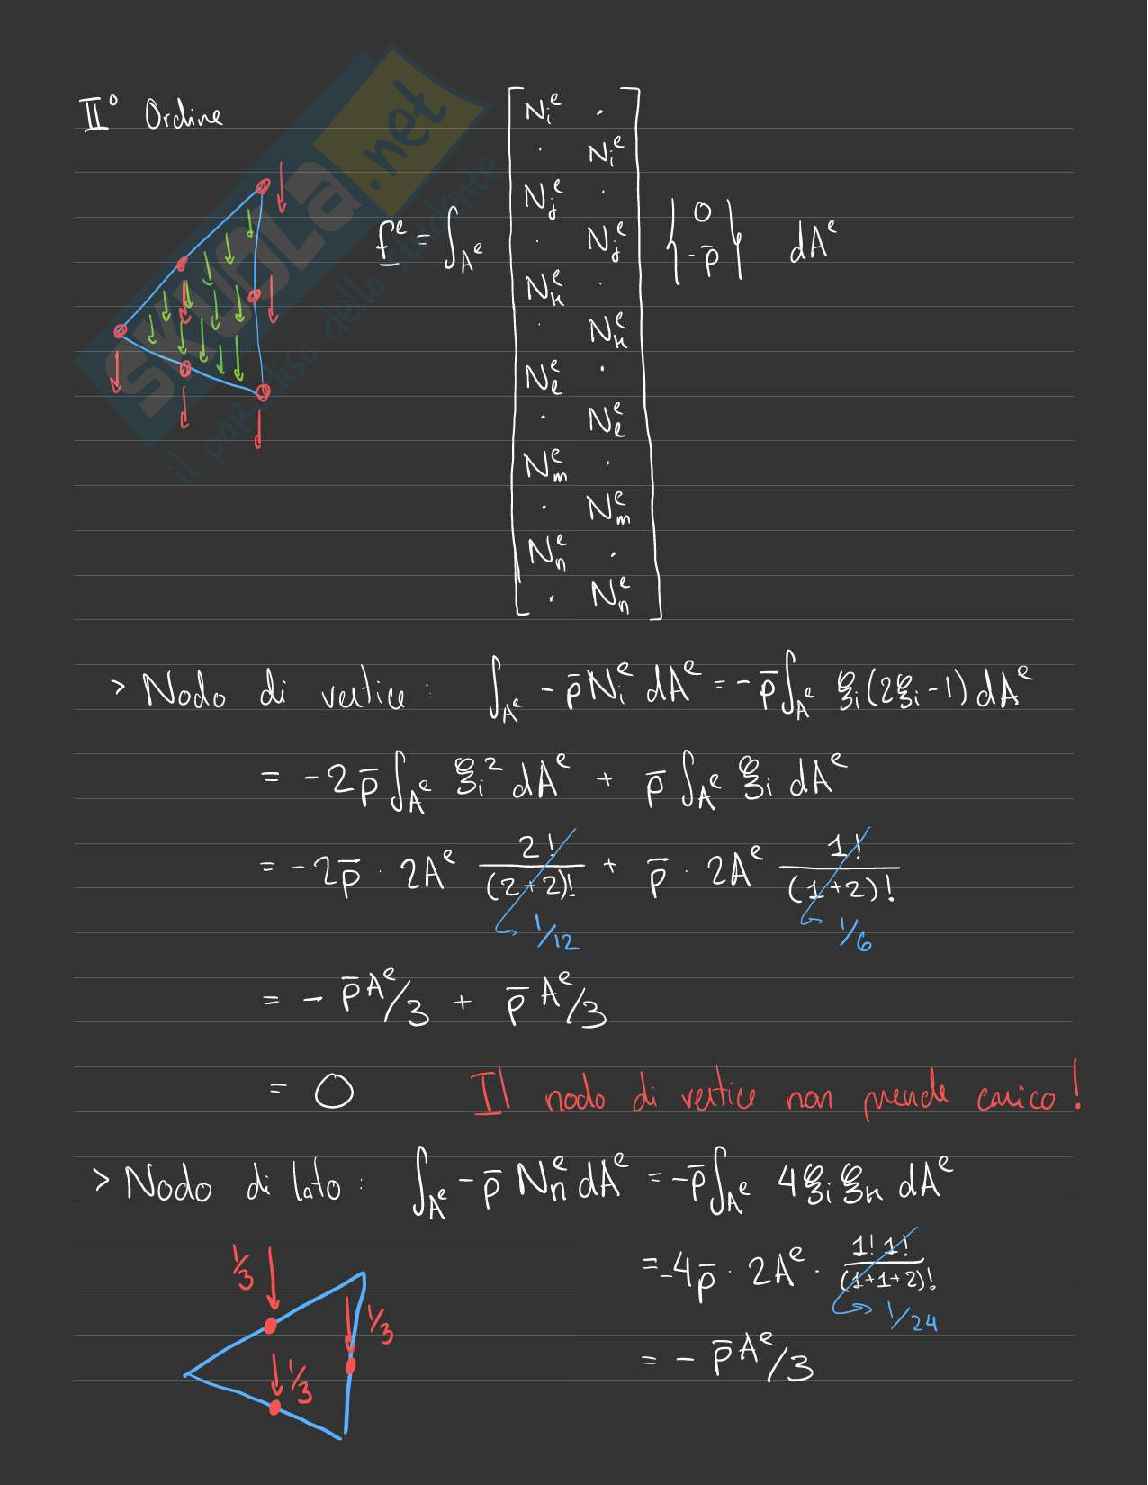 II° Ordine
skuola.net
f^e = ∫_{A^e} [N_i^e · ; · N_i^e ; N_j^e · ; · N_j^e ; N_k^e · ; · N_k^e ; N_l^e · ; · N_l^e ; N_m^e · ; · N_m^e ; N_n^e · ; · N_n^e] {0 ; -p̄} dA^e
> Nodo di vertice: ∫_{A^e} - p̄ N_i^e dA^e = - p̄ ∫_{A^e} ξ_i (2ξ_i - 1) dA^e
= -2p̄ ∫_{A^e} ξ_i² dA^e + p̄ ∫_{A^e} ξ_i dA^e
= -2p̄ · 2A^e 2!/(2+2)! + p̄ · 2A^e 1!/(1+2)!
1/12 1/6
= - p̄ A^e/3 + p̄ A^e/3
= 0 Il nodo di vertice non prende carico!
> Nodo di lato: ∫_{A^e} - p̄ N_n^e dA^e = - p̄ ∫_{A^e} 4 ξ_i ξ_k dA^e
= -4p̄ · 2A^e · 1! 1!/(1+1+2)!
1/24
= - p̄ A^e/3
1/3
1/3
1/3